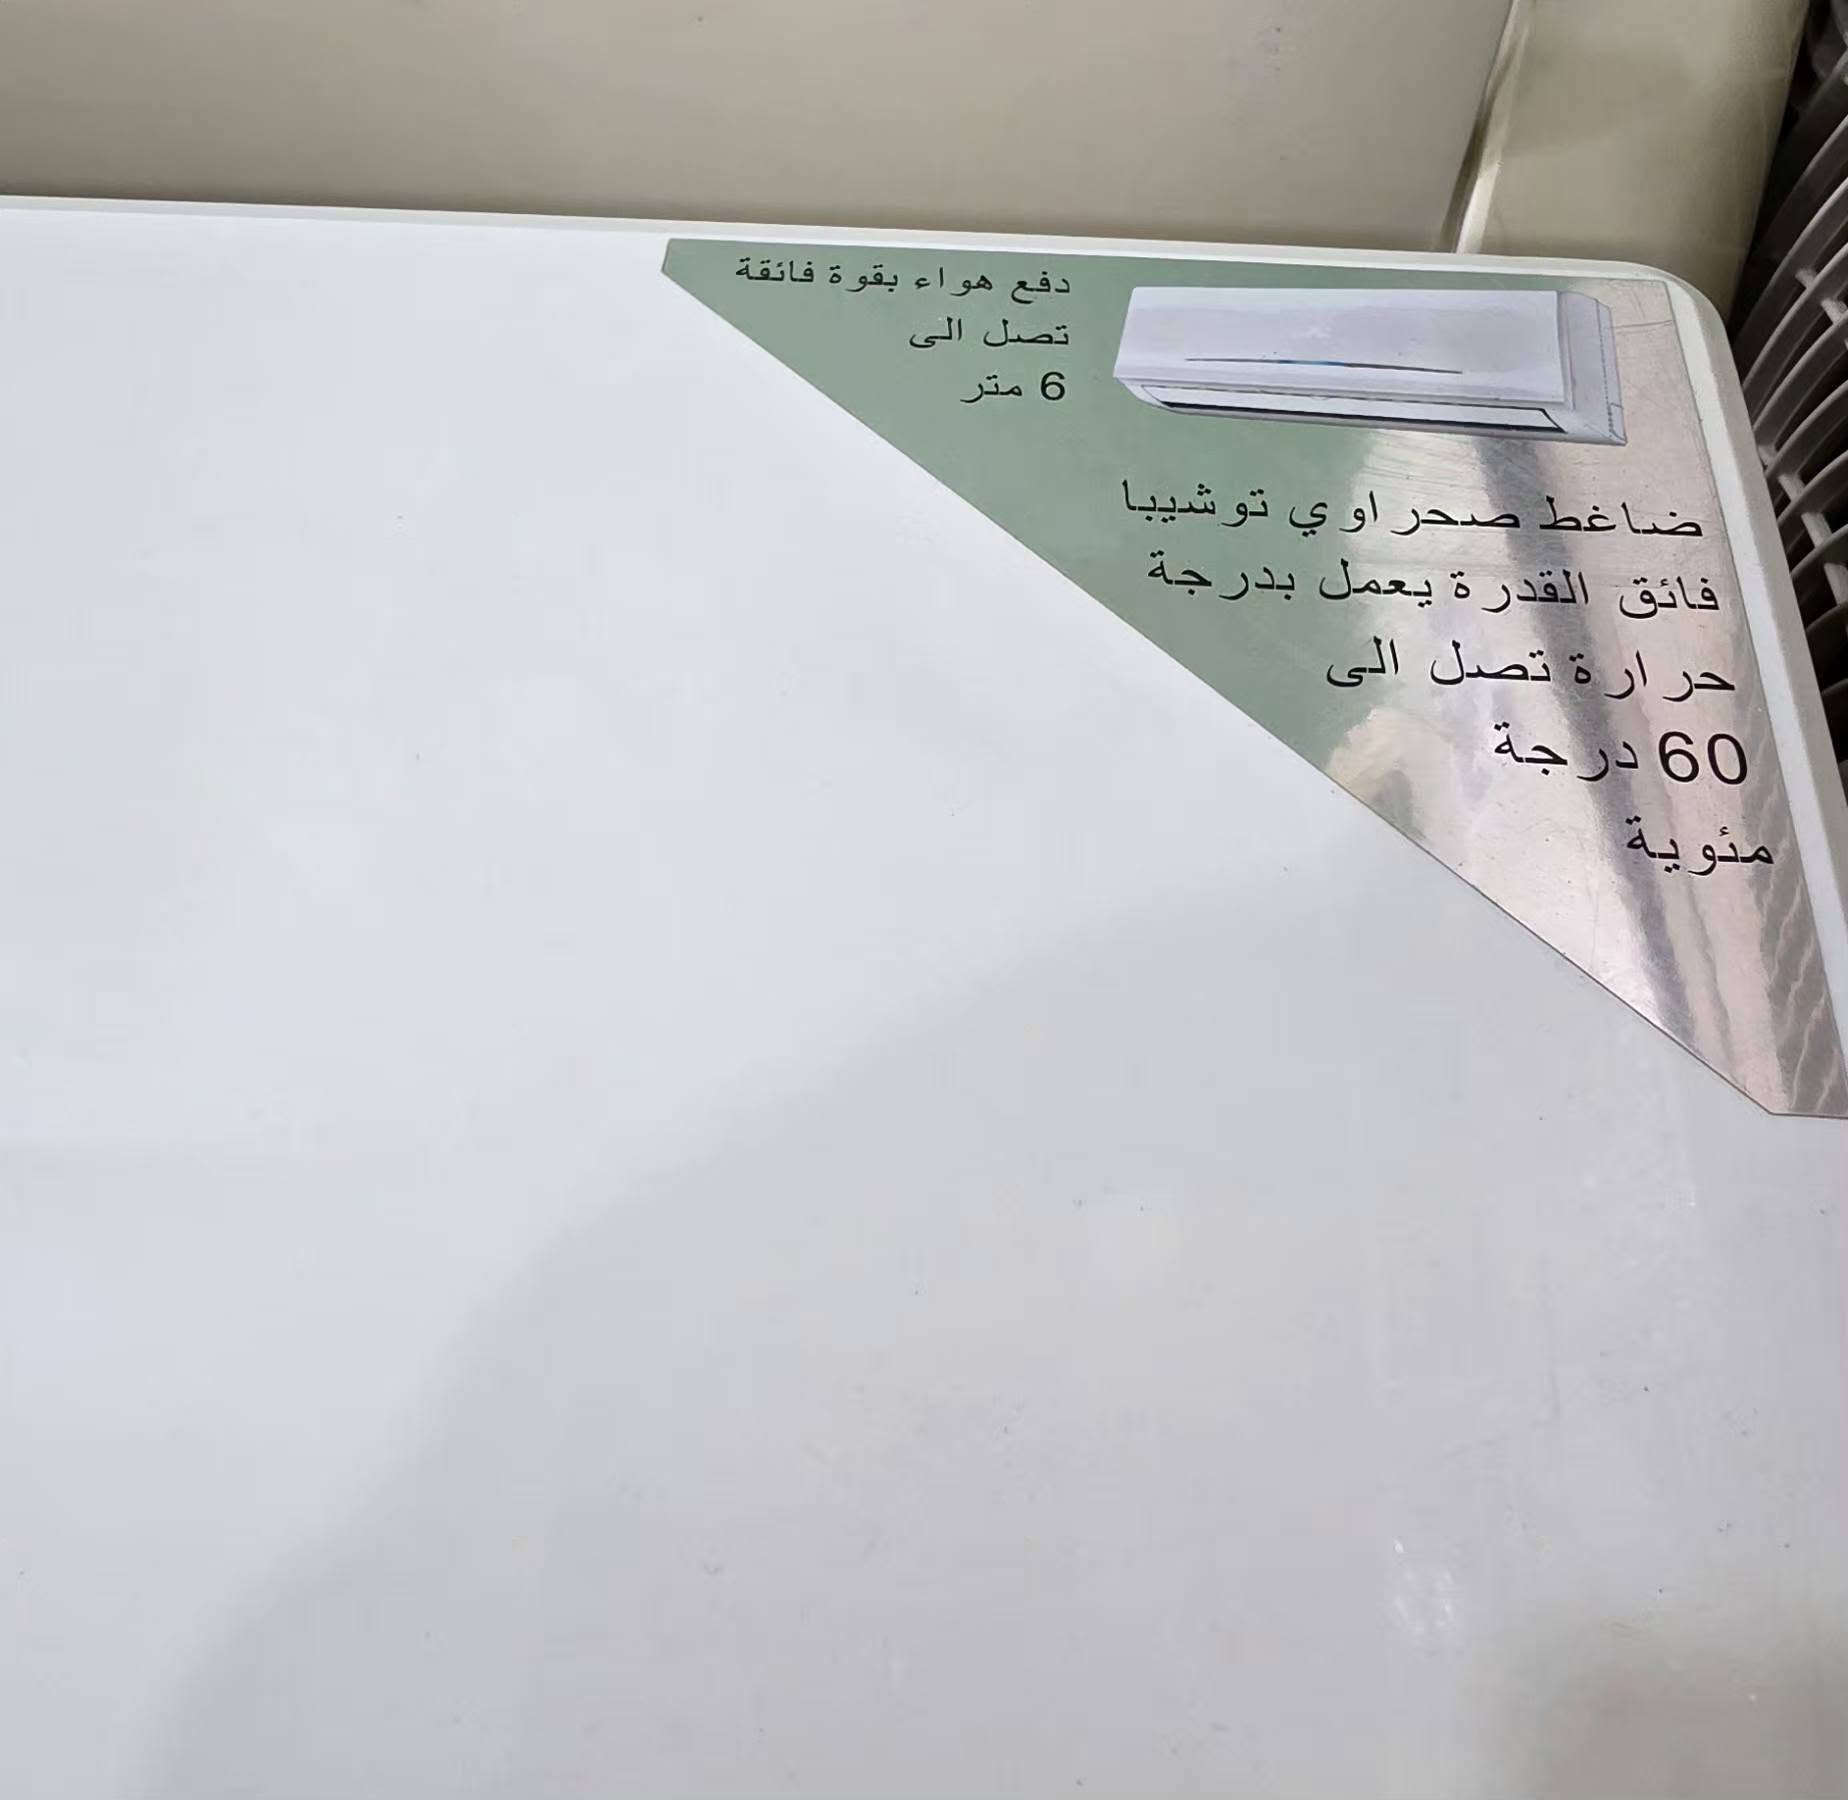 دفع هواء بقوة فائقة
تصل الى
6 متر
ضاغط صحراوي توشيبا
فائق القدرة يعمل بدرجة
حرارة تصل الى
60 درجة
مئوية